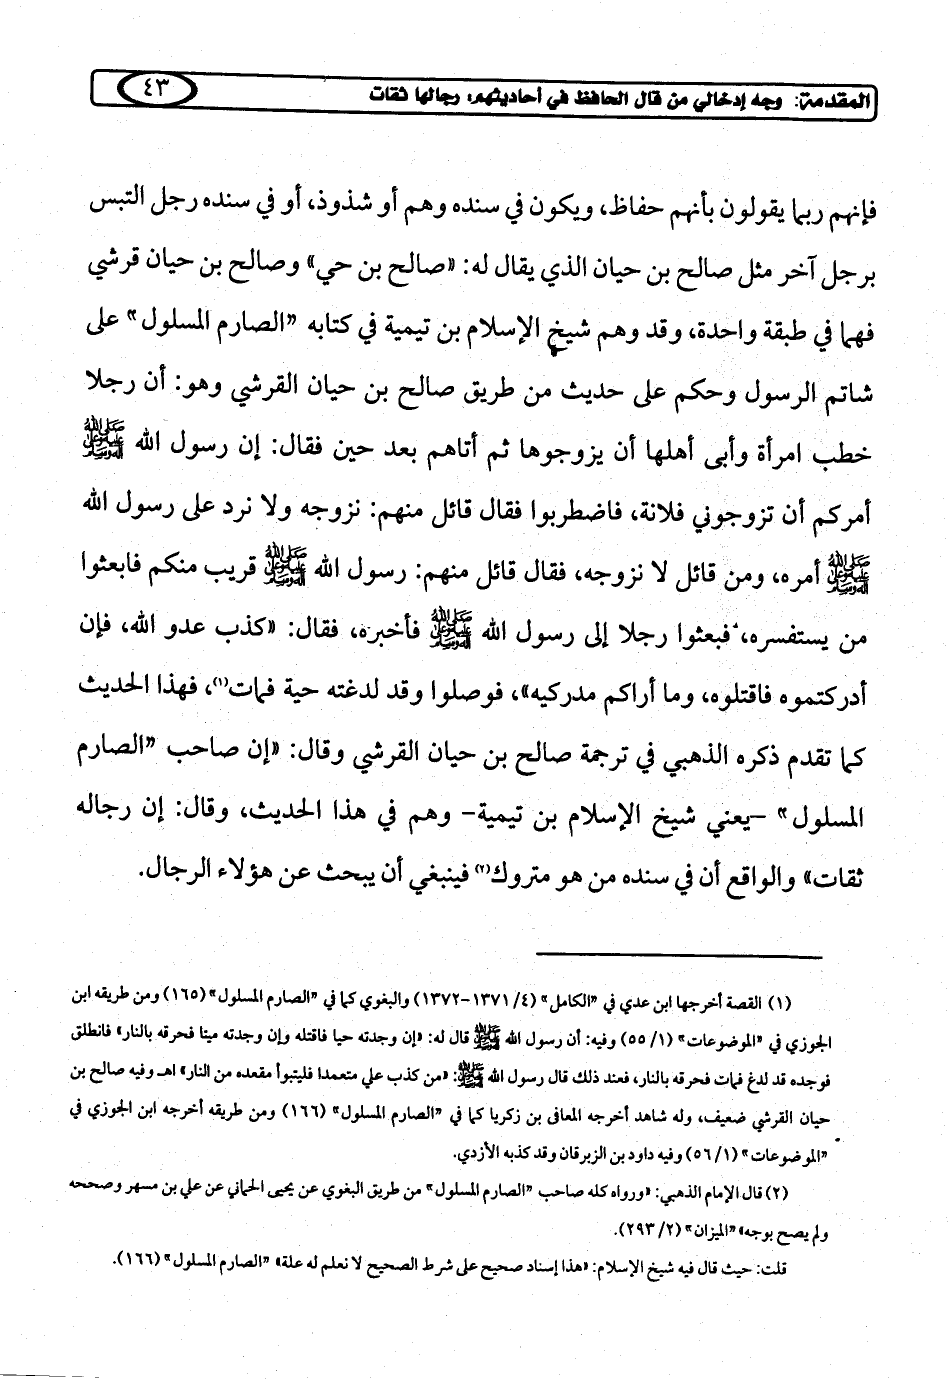 المقدمة: وجه إدخالي من قال الحافظ في أحاديثهم: رجالها ثقات ٤٣
فإنهم ربما يقولون بأنهم حفاظ، ويكون في سنده وهم أو شذوذ، أو في سنده رجل التبس
برجل آخر مثل صالح بن حيان الذي يقال له: «صالح بن حي» وصالح بن حيان قرشي
فهما في طبقة واحدة، وقد وهم شيخ الإسلام بن تيمية في كتابه "الصارم المسلول" على
شاتم الرسول وحكم على حديث من طريق صالح بن حيان القرشي وهو: أن رجلا
خطب امرأة وأبى أهلها أن يزوجوها ثم أتاهم بعد حين فقال: إن رسول الله ﷺ
أمركم أن تزوجوني فلانة، فاضطربوا فقال قائل منهم: نزوجه ولا نرد على رسول الله
ﷺ أمره، ومن قائل لا نزوجه، فقال قائل منهم: رسول الله ﷺ قريب منكم فابعثوا
من يستفسره، فبعثوا رجلا إلى رسول الله ﷺ فأخبره، فقال: «كذب عدو الله، فإن
أدركتموه فاقتلوه، وما أراكم مدركيه»، فوصلوا وقد لدغته حية فمات(١)، فهذا الحديث
كما تقدم ذكره الذهبي في ترجمة صالح بن حيان القرشي وقال: «إن صاحب "الصارم
المسلول" -يعني شيخ الإسلام بن تيمية- وهم في هذا الحديث، وقال: إن رجاله
ثقات» والواقع أن في سنده من هو متروك(٢) فينبغي أن يبحث عن هؤلاء الرجال.
(١) القصة أخرجها ابن عدي في "الكامل" (٤/ ١٣٧١-١٣٧٢) والبغوي كما في "الصارم المسلول" (١٦٥) ومن طريقه ابن
الجوزي في "الموضوعات" (١/ ٥٥) وفيه: أن رسول الله ﷺ قال له: «إن وجدته حيا فاقتله وإن وجدته ميتا فحرقه بالنار» فانطلق
فوجده قد لدغ فمات فحرقه بالنار، فعند ذلك قال رسول الله ﷺ: «من كذب علي متعمدا فليتبوأ مقعده من النار» اهـ وفيه صالح بن
حيان القرشي ضعيف، وله شاهد أخرجه المعافى بن زكريا كما في "الصارم المسلول" (١٦٦) ومن طريقه أخرجه ابن الجوزي في
"الموضوعات" (١/ ٥٦) وفيه داود بن الزبرقان وقد كذبه الأزدي.
(٢) قال الإمام الذهبي: «ورواه كله صاحب "الصارم المسلول" من طريق البغوي عن يحيى الحماني عن علي بن مسهر وصححه
ولم يصح بوجه» "الميزان" (٢/ ٢٩٣).
قلت: حيث قال فيه شيخ الإسلام: «هذا إسناد صحيح على شرط الصحيح لا نعلم له علة» "الصارم المسلول" (١٦٦).